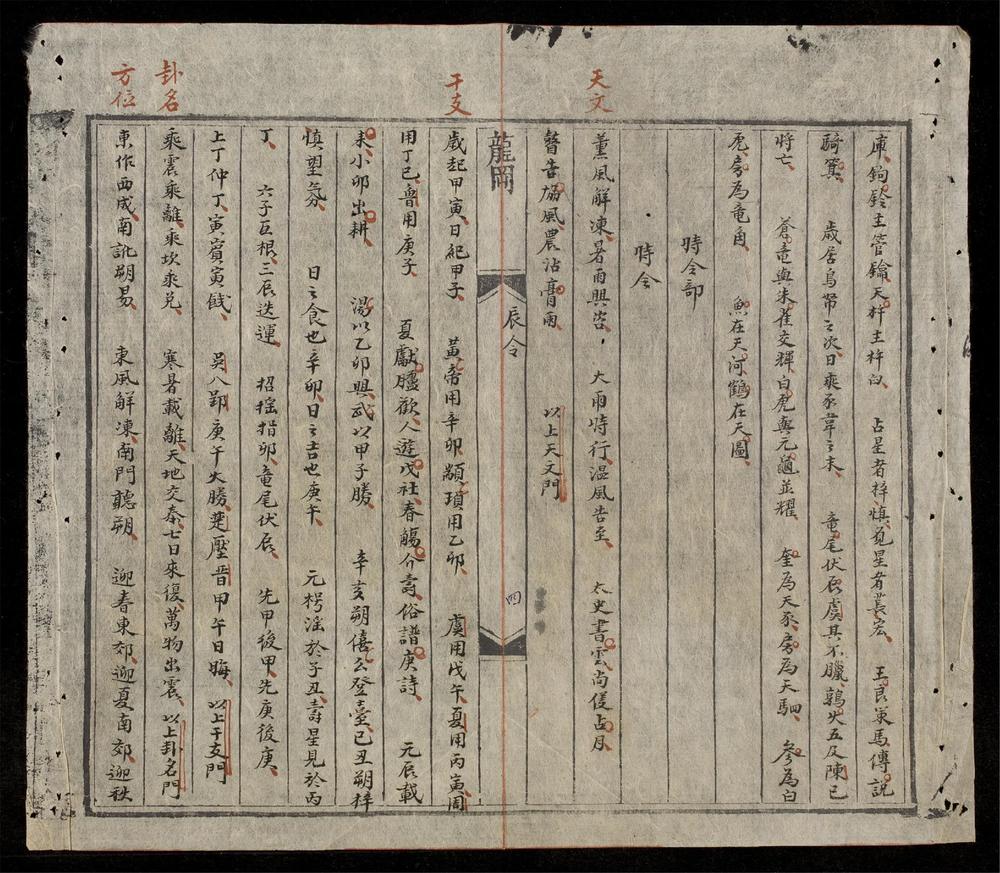 天文
干支
卦名
方位
庫、鉤鈴主管鑰、天杵主杵臼、 占星者梓慎、覓星者萇宏、 王良策馬、傅説
騎箕、 歲居鳥帑之次、日乘豕韋之末、 竜尾伏辰、虞其不臘、鶉火五及、陳已
將亡、 蒼竜與朱雀交輝、白虎與元龜並耀、 奎為天豕、房為天駟、 參為白
虎、房為竜角、 魚在天河、鶴在天圖、
時令部
時令
薰風解凍、暑雨興咨、 大雨時行、温風告至、 太史書雲、尚僕占月、
瞽告協風、農沾膏雨、 以上天文門
龍岡
辰令
四
歲起甲寅、日紀甲子、 黃帝用辛卯、顓頊用乙卯、 虞用戊午、夏用丙寅、周
用丁巳、魯用庚子、 夏獻臚歡、人遊戊社、春觴介壽、俗譜庚詩、 元辰載
耒、小卯出耕、 湯以乙卯興、武以甲子勝、 辛亥朔僖公登臺、己丑朔梓
慎望氛、 日之食也辛卯、日之吉也庚午、 元枵淫於子丑、壽星見於丙
丁、 六子互根、三辰迭運、 招搖指卯、竜尾伏辰、 先甲後甲、先庚後庚、
上丁仲丁、寅賓寅餞、 吳入郢庚午大勝、楚壓晉甲午日晦、 以上干支門
乘震乘離、乘坎乘兑、 寒暑載離、天地交泰、七日來復、萬物出震、 以上卦名門
東作西成、南訛朔易、 東風解凍、南門聽朔、 迎春東郊、迎夏南郊、迎秋